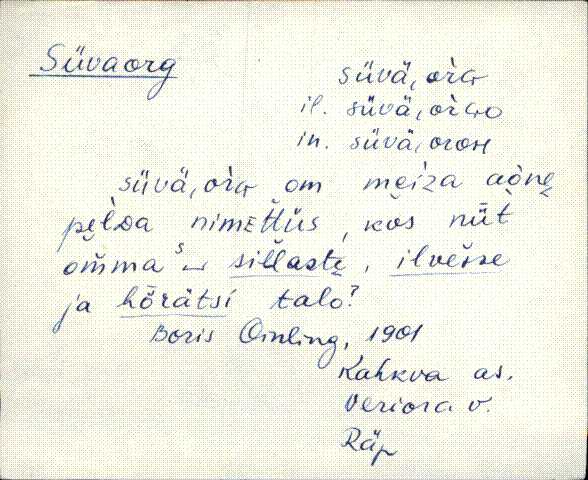 Süvaorg
süvä, òrG
il. süvä, òrGo
in. süvä, oroн
süvä, òrG om meiza aònę
pèlDa nimeƫüs, kòs nǖt
om̄ma s‿ sil̄astę, ilvès̄e
ja hȫrätsi talo?
Boris Oinling, 1901
Kahkva as.
Veriora v.
Räp